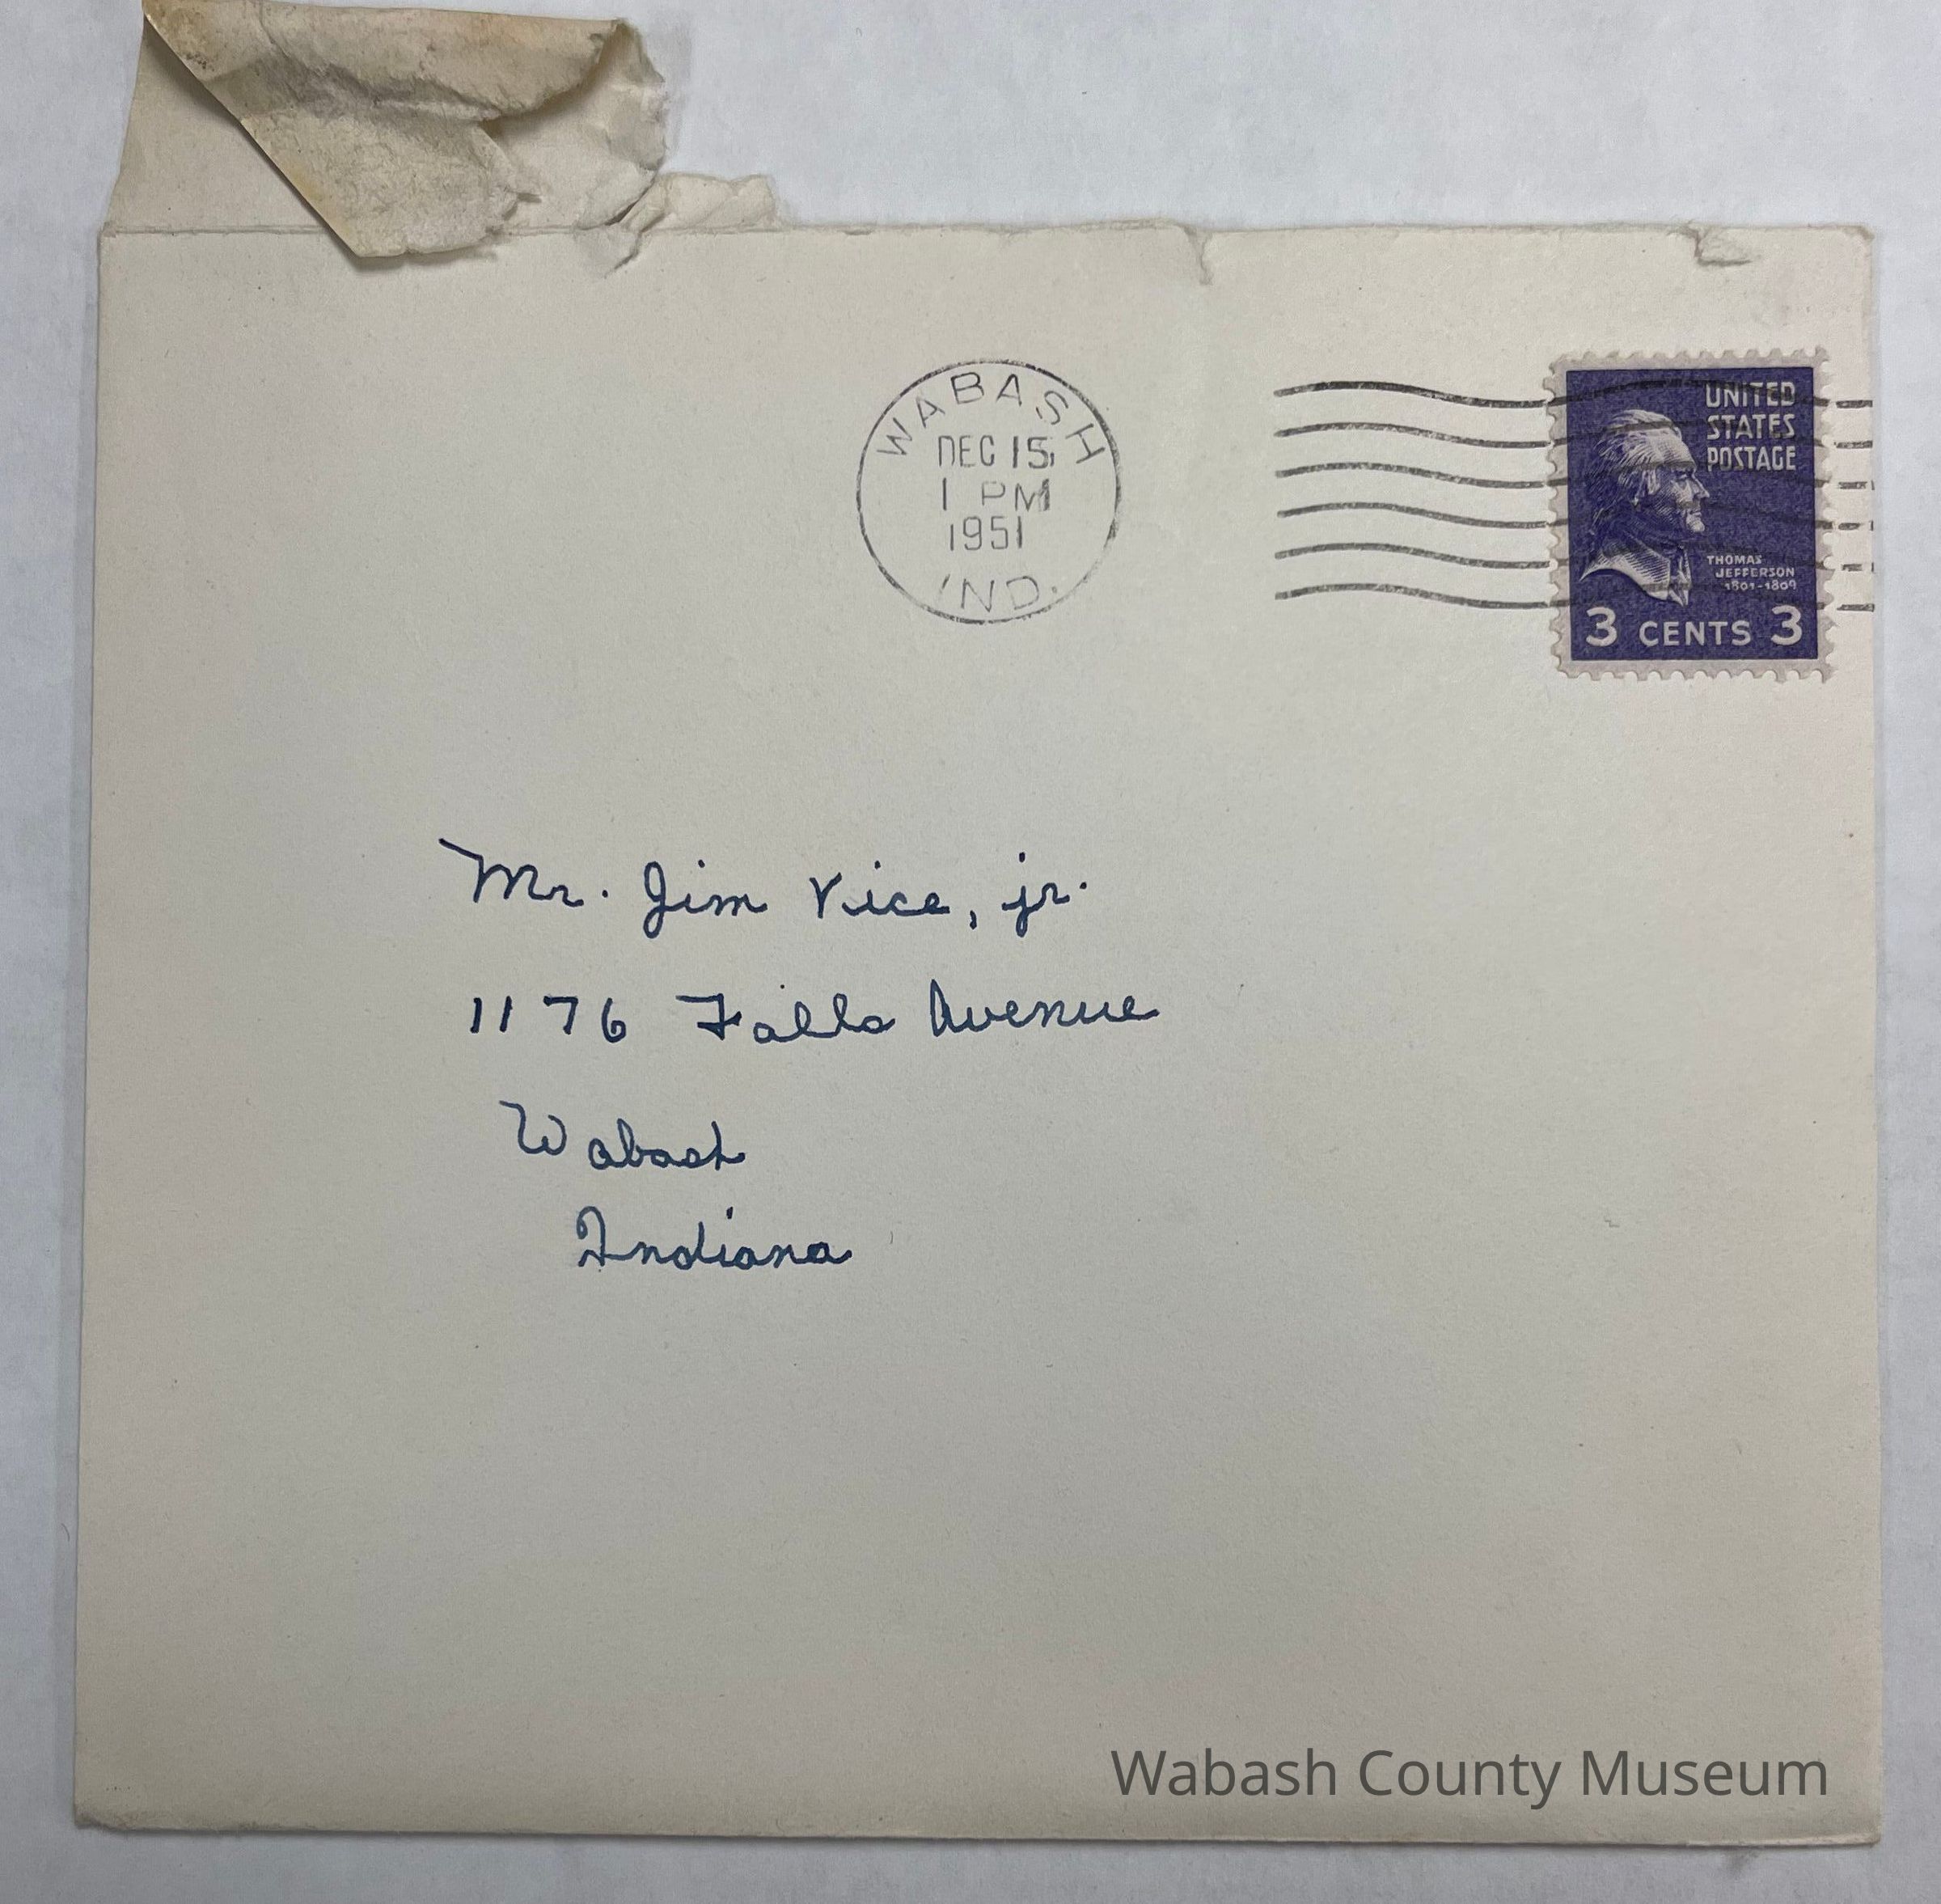 WABASH
DEC 15
1 PM
1951
IND.
UNITED
STATES
POSTAGE
THOMAS
JEFFERSON
1801-1809
3 CENTS 3
Mr. Jim Vice, jr.
1176 Falls Avenue
Wabash
Indiana
Wabash County Museum